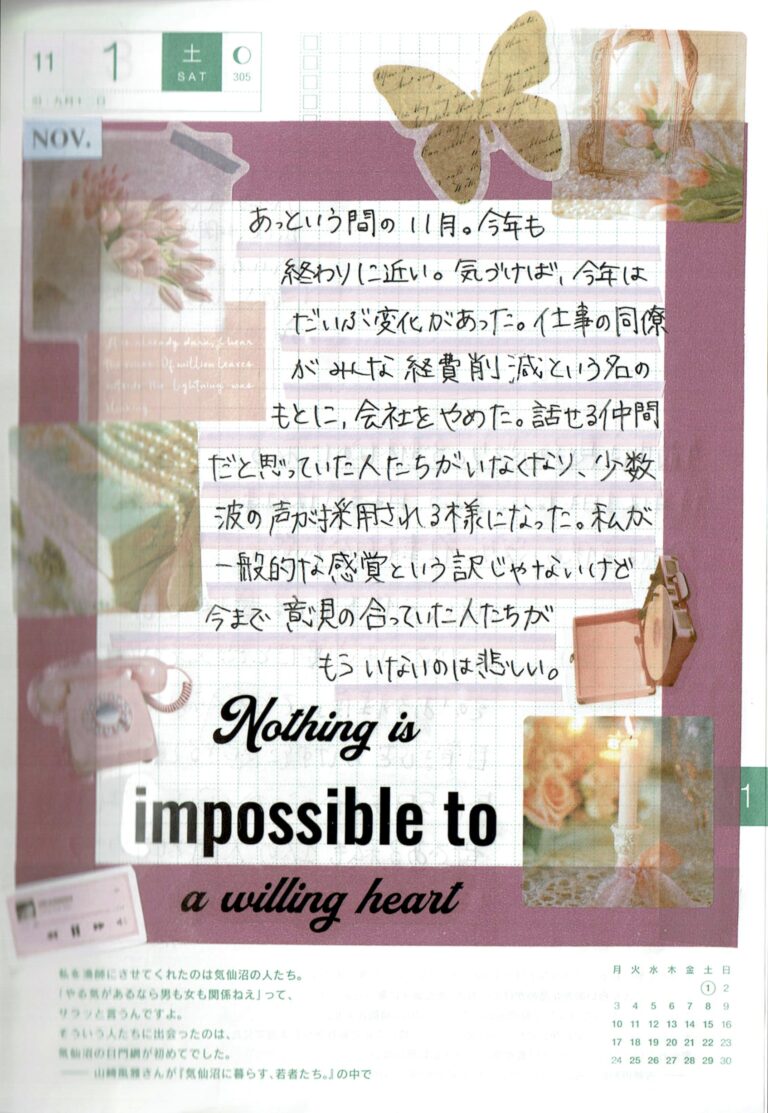 11 1 土 SAT 305
NOV.
あっという間の11月。今年も
終わりに近い。気づけば、今年は
だいぶ変化があった。仕事の同僚
がみんな経費削減という名の
もとに、会社をやめた。話せる仲間
だと思っていた人たちがいなくなり、少数
波の声が採用される様になった。私が
一般的な感覚という訳じゃないけど
今まで意見の合っていた人たちが
もういないのは悲しい。
It is already dark, I hear
Of million leaves
outside the lightning was
Nothing is
impossible to
a willing heart
1
私を漁師にさせてくれたのは気仙沼の人たち。
「やる気があるなら男も女も関係ねえ」って、
サラッと言うんですよ。
そういう人たちに出会ったのは、
気仙沼の日門網が初めてでした。
―― 山﨑風雅さんが『気仙沼に暮らす、若者たち。』の中で
月 火 水 木 金 土 日
1 2
3 4 5 6 7 8 9
10 11 12 13 14 15 16
17 18 19 20 21 22 23
24 25 26 27 28 29 30